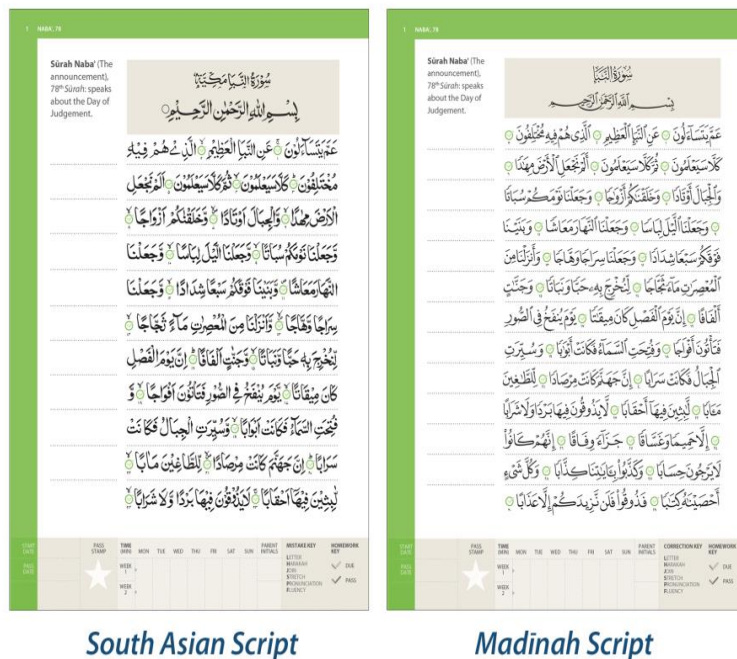 1 NABA', 78
Sūrah Naba' (The
announcement),
78th Sūrah: speaks
about the Day of
Judgement.
سُوْرَةُ النَّبَاِ مَكِّيَّةٌ
بِسْمِ اللهِ الرَّحْمٰنِ الرَّحِيْمِ
عَمَّ يَتَسَآءَلُوْنَ عَنِ النَّبَاِ الْعَظِيْمِ الَّذِيْ هُمْ فِيْهِ
مُخْتَلِفُوْنَ كَلَّا سَيَعْلَمُوْنَ ثُمَّ كَلَّا سَيَعْلَمُوْنَ اَلَمْ نَجْعَلِ
الْاَرْضَ مِهٰدًا وَّالْجِبَالَ اَوْتَادًا وَّخَلَقْنٰكُمْ اَزْوَاجًا
وَّجَعَلْنَا نَوْمَكُمْ سُبَاتًا وَّجَعَلْنَا الَّيْلَ لِبَاسًا وَّجَعَلْنَا
النَّهَارَ مَعَاشًا وَّبَنَيْنَا فَوْقَكُمْ سَبْعًا شِدَادًا وَّجَعَلْنَا
سِرَاجًا وَّهَّاجًا وَّاَنْزَلْنَا مِنَ الْمُعْصِرٰتِ مَآءً ثَجَّاجًا
لِّنُخْرِجَ بِهٖ حَبًّا وَّنَبَاتًا وَّجَنّٰتٍ اَلْفَافًا اِنَّ يَوْمَ الْفَصْلِ
كَانَ مِيْقَاتًا يَّوْمَ يُنْفَخُ فِي الصُّوْرِ فَتَاْتُوْنَ اَفْوَاجًا وَّ
فُتِحَتِ السَّمَآءُ فَكَانَتْ اَبْوَابًا وَّسُيِّرَتِ الْجِبَالُ فَكَانَتْ
سَرَابًا اِنَّ جَهَنَّمَ كَانَتْ مِرْصَادًا لِّلطَّاغِيْنَ مَاٰبًا
لّٰبِثِيْنَ فِيْهَآ اَحْقَابًا لَا يَذُوْقُوْنَ فِيْهَا بَرْدًا وَّلَا شَرَابًا
START DATE
PASS DATE
PASS STAMP
TIME (MIN) MON TUE WED THU FRI SAT SUN
WEEK 1
WEEK 2
PARENT INITIALS
MISTAKE KEY
LETTER
HARAKAH
JOIN
STRETCH
PRONUNCIATION
FLUENCY
HOMEWORK KEY
DUE
PASS
South Asian Script
1 NABA', 78
Sūrah Naba' (The
announcement),
78th Sūrah: speaks
about the Day of
Judgement.
سُورَةُ النَّبَإِ
بِسْمِ اللَّهِ الرَّحْمَٰنِ الرَّحِيمِ
عَمَّ يَتَسَآءَلُونَ عَنِ ٱلنَّبَإِ ٱلْعَظِيمِ ٱلَّذِى هُمْ فِيهِ مُخْتَلِفُونَ
كَلَّا سَيَعْلَمُونَ ثُمَّ كَلَّا سَيَعْلَمُونَ أَلَمْ نَجْعَلِ ٱلْأَرْضَ مِهَٰدًا
وَٱلْجِبَالَ أَوْتَادًا وَخَلَقْنَٰكُمْ أَزْوَٰجًا وَجَعَلْنَا نَوْمَكُمْ سُبَاتًا
وَجَعَلْنَا ٱلَّيْلَ لِبَاسًا وَجَعَلْنَا ٱلنَّهَارَ مَعَاشًا وَبَنَيْنَا
فَوْقَكُمْ سَبْعًا شِدَادًا وَجَعَلْنَا سِرَاجًا وَهَّاجًا وَأَنزَلْنَا مِنَ
ٱلْمُعْصِرَٰتِ مَآءً ثَجَّاجًا لِّنُخْرِجَ بِهِۦ حَبًّا وَنَبَاتًا وَجَنَّٰتٍ
أَلْفَافًا إِنَّ يَوْمَ ٱلْفَصْلِ كَانَ مِيقَٰتًا يَوْمَ يُنفَخُ فِى ٱلصُّورِ
فَتَأْتُونَ أَفْوَاجًا وَفُتِحَتِ ٱلسَّمَآءُ فَكَانَتْ أَبْوَٰبًا وَسُيِّرَتِ
ٱلْجِبَالُ فَكَانَتْ سَرَابًا إِنَّ جَهَنَّمَ كَانَتْ مِرْصَادًا لِّلطَّٰغِينَ
مَـَٔابًا لَّٰبِثِينَ فِيهَآ أَحْقَابًا لَّا يَذُوقُونَ فِيهَا بَرْدًا وَلَا شَرَابًا
إِلَّا حَمِيمًا وَغَسَّاقًا جَزَآءً وِفَاقًا إِنَّهُمْ كَانُوا۟
لَا يَرْجُونَ حِسَابًا وَكَذَّبُوا۟ بِـَٔايَٰتِنَا كِذَّابًا وَكُلَّ شَىْءٍ
أَحْصَيْنَٰهُ كِتَٰبًا فَذُوقُوا۟ فَلَن نَّزِيدَكُمْ إِلَّا عَذَابًا
START DATE
PASS DATE
PASS STAMP
TIME (MIN) MON TUE WED THU FRI SAT SUN
WEEK 1
WEEK 2
PARENT INITIALS
CORRECTION KEY
LETTER
HARAKAH
JOIN
STRETCH
PRONUNCIATION
FLUENCY
HOMEWORK KEY
DUE
PASS
Madīnah Script